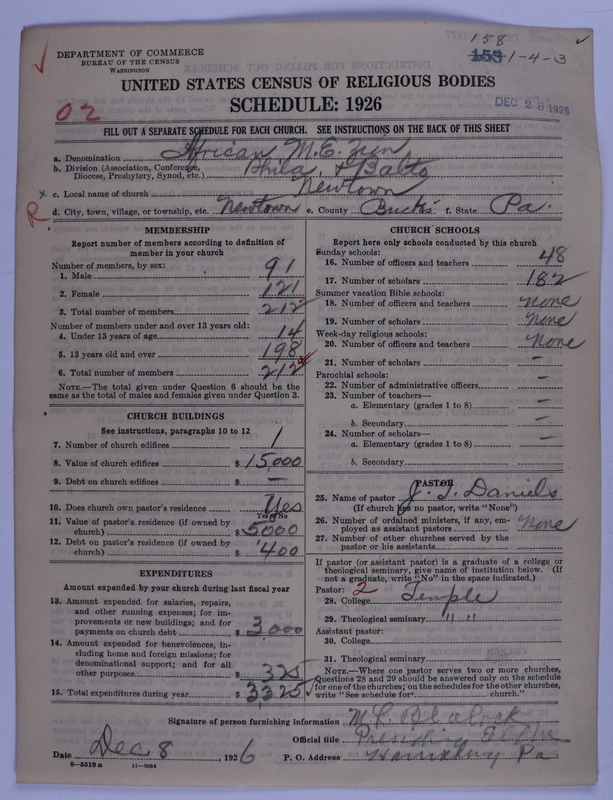 158
153 1-4-3
DEPARTMENT OF COMMERCE
BUREAU OF THE CENSUS
WASHINGTON
UNITED STATES CENSUS OF RELIGIOUS BODIES
SCHEDULE: 1926
DEC 28 1926
02
FILL OUT A SEPARATE SCHEDULE FOR EACH CHURCH. SEE INSTRUCTIONS ON THE BACK OF THIS SHEET
a. Denomination African M.E. Zion
b. Division (Association, Conference, Diocese, Presbytery, Synod, etc.) Phila. & Balto
c. Local name of church Newtown
R
d. City, town, village, or township, etc. Newtown e. County Bucks f. State Pa.
MEMBERSHIP
Report number of members according to definition of
member in your church
Number of members, by sex:
1. Male 91
2. Female 121
3. Total number of members 212
Number of members under and over 13 years old:
4. Under 13 years of age 14
5. 13 years old and over 198
6. Total number of members 212
NOTE.—The total given under Question 6 should be the
same as the total of males and females given under Question 3.
CHURCH BUILDINGS
See instructions, paragraphs 10 to 12
7. Number of church edifices 1
8. Value of church edifices $ 15,000
9. Debt on church edifices $ —
10. Does church own pastor's residence Yes
Yes or No
11. Value of pastor's residence (if owned by
church) $ 5000
12. Debt on pastor's residence (if owned by
church) $ 400
EXPENDITURES
Amount expended by your church during last fiscal year
13. Amount expended for salaries, repairs,
and other running expenses; for im-
provements or new buildings; and for
payments on church debt $ 3,000
14. Amount expended for benevolences, in-
cluding home and foreign missions; for
denominational support; and for all
other purposes $ 325
15. Total expenditures during year $ 3325
CHURCH SCHOOLS
Report here only schools conducted by this church
Sunday schools:
16. Number of officers and teachers 48
17. Number of scholars 182
Summer vacation Bible schools:
18. Number of officers and teachers none
19. Number of scholars None
Week-day religious schools:
20. Number of officers and teachers None
21. Number of scholars —
Parochial schools:
22. Number of administrative officers —
23. Number of teachers—
a. Elementary (grades 1 to 8) —
b. Secondary —
24. Number of scholars—
a. Elementary (grades 1 to 8) —
b. Secondary
PASTOR
25. Name of pastor J. T. Daniels
(If church has no pastor, write "None")
26. Number of ordained ministers, if any, em-
ployed as assistant pastors None
27. Number of other churches served by the
pastor or his assistants
If pastor (or assistant pastor) is a graduate of a college or
theological seminary, give name of institution below. (If
not a graduate, write "No" in the space indicated.)
Pastor: 2
28. College Temple
29. Theological seminary " "
Assistant pastor:
30. College
31. Theological seminary
NOTE.—Where one pastor serves two or more churches,
Questions 28 and 29 should be answered only on the schedule
for one of the churches; on the schedules for the other churches,
write "See schedule for church."
Signature of person furnishing information
Official title Presiding Elder
Date Dec 8, 1926 P. O. Address Harrisburg Pa
8—5518 a 11—9054